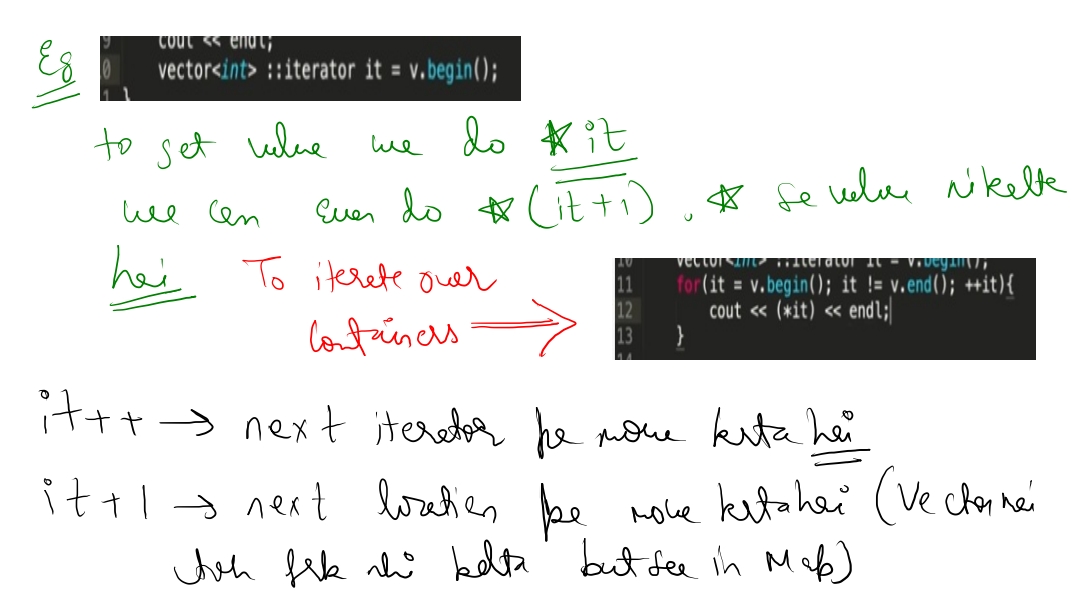 Eg
cout << endl;
0 vector<int> ::iterator it = v.begin();
}
to get value we do * it
we can even do * (it+1) . * se value nikalte
hai
To iterate over
containers
10 vector<int> ::iterator it = v.begin();
11 for(it = v.begin(); it != v.end(); ++it){
12 cout << (*it) << endl;
13 }
it++ → next iterator pe move krta hai
it+1 → next location pe move krta hai (Vector mei
frk nhi but see in Map)